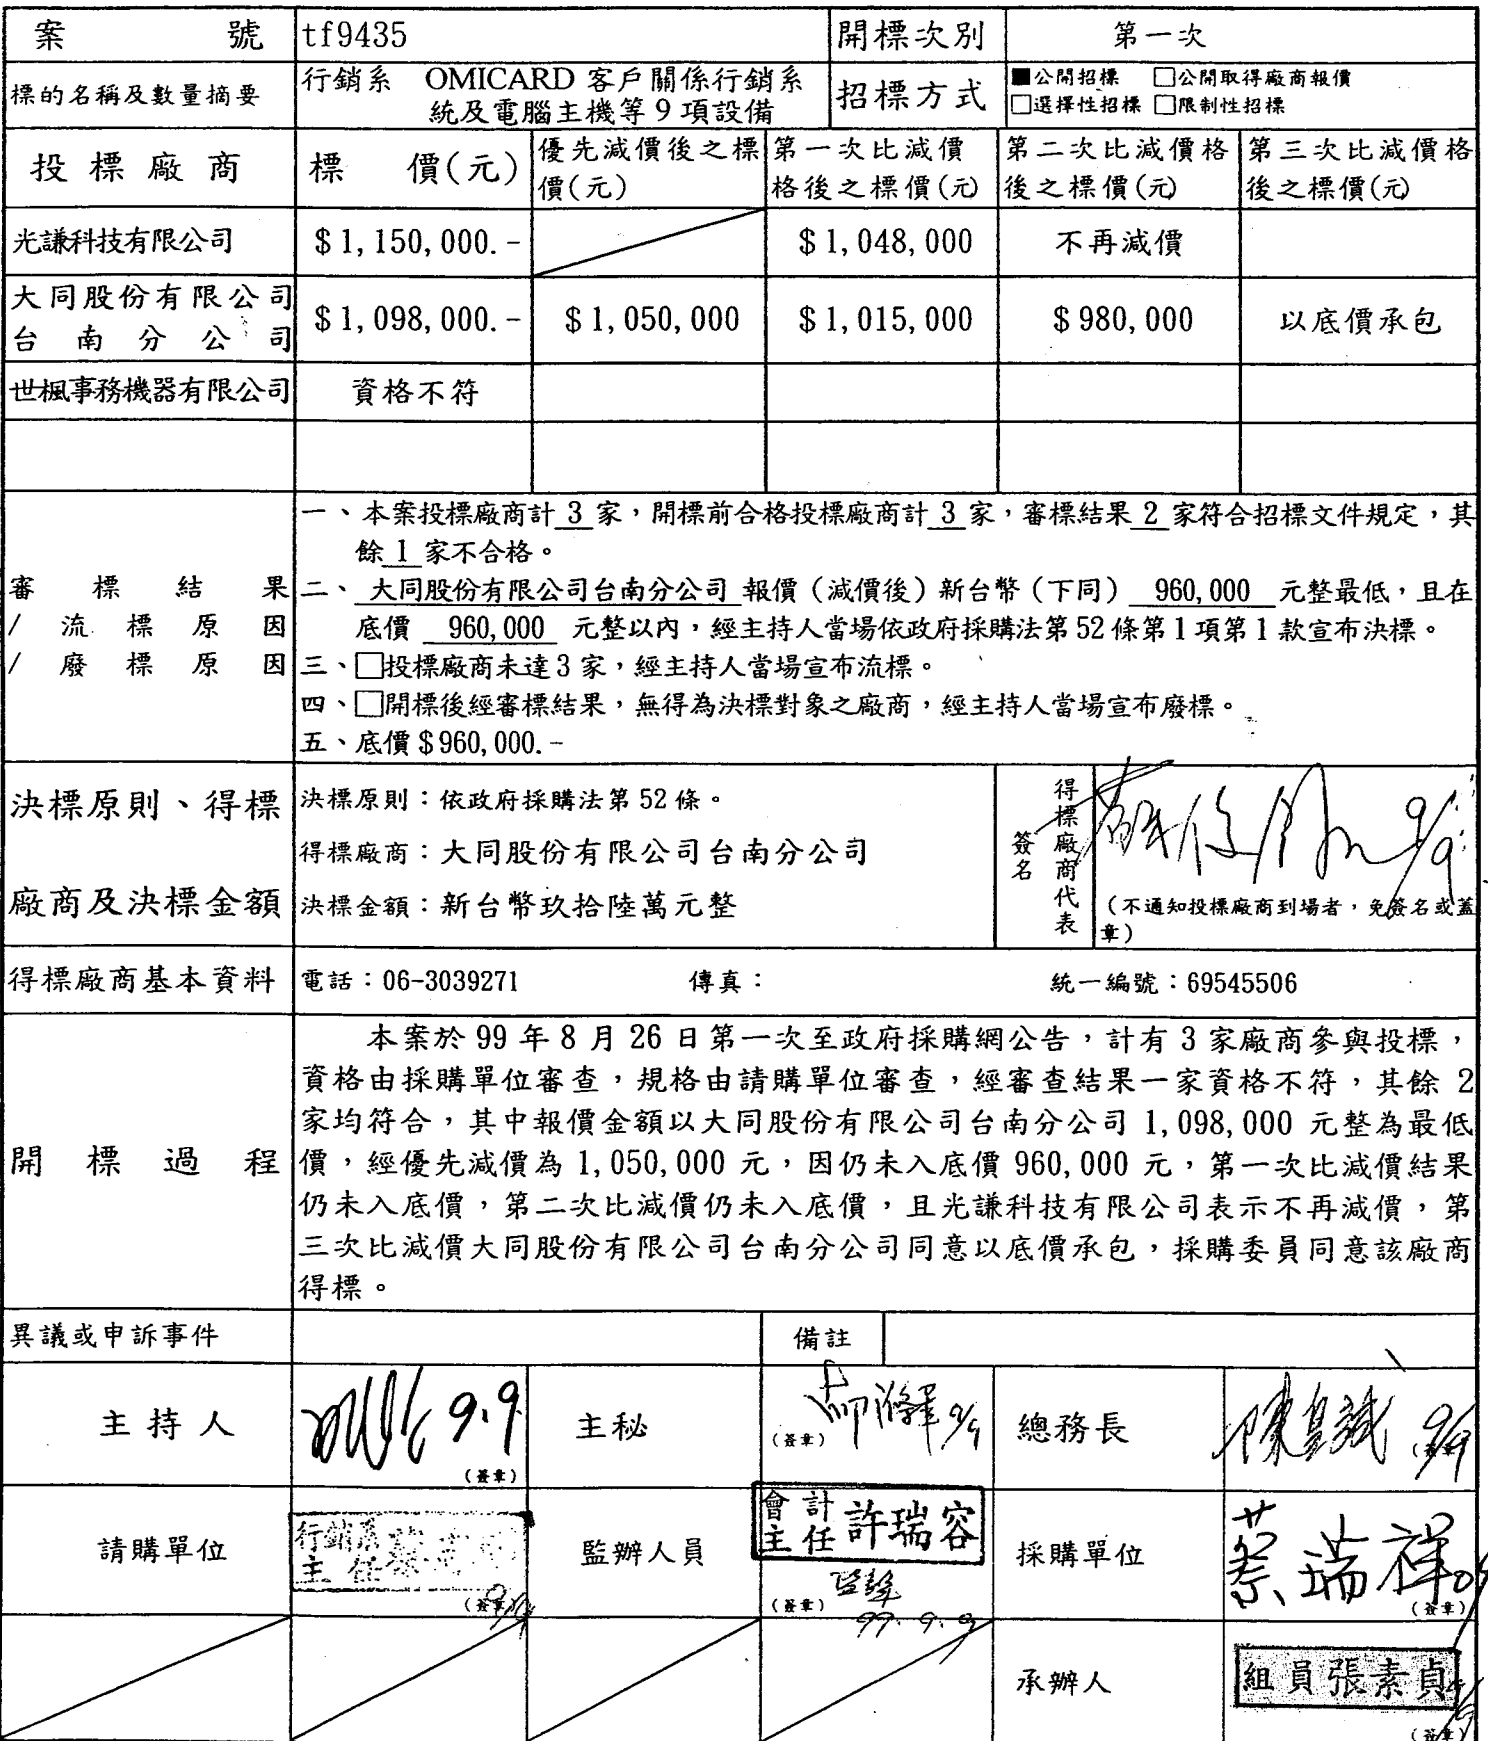 案 號 tf9435 開標次別 第一次
標的名稱及數量摘要 行銷系 OMICARD 客戶關係行銷系
統及電腦主機等 9 項設備
招標方式 ■公開招標 □公開取得廠商報價
□選擇性招標 □限制性招標
投標廠商 標 價(元) 優先減價後之標 第一次比減價 第二次比減價格 第三次比減價格
價(元) 格後之標價(元) 後之標價(元) 後之標價(元)
光謙科技有限公司 $1,150,000.- $1,048,000 不再減價
大同股份有限公司
台南分公司 $1,098,000.- $1,050,000 $1,015,000 $980,000 以底價承包
世楓事務機器有限公司 資格不符
審標結果
/流標原因
/廢標原因
一、本案投標廠商計 3 家，開標前合格投標廠商計 3 家，審標結果 2 家符合招標文件規定，其
餘 1 家不合格。
二、大同股份有限公司台南分公司 報價（減價後）新台幣（下同） 960,000 元整最低，且在
底價 960,000 元整以內，經主持人當場依政府採購法第 52 條第 1 項第 1 款宣布決標。
三、□投標廠商未達 3 家，經主持人當場宣布流標。
四、□開標後經審標結果，無得為決標對象之廠商，經主持人當場宣布廢標。
五、底價 $960,000.-
決標原則、得標
廠商及決標金額
決標原則：依政府採購法第 52 條。
得標廠商：大同股份有限公司台南分公司
決標金額：新台幣玖拾陸萬元整
得標廠商代表
簽名
9/9
（不通知投標廠商到場者，免簽名或蓋
章）
得標廠商基本資料 電話：06-3039271 傳真： 統一編號：69545506
開標過程
本案於 99 年 8 月 26 日第一次至政府採購網公告，計有 3 家廠商參與投標，
資格由採購單位審查，規格由請購單位審查，經審查結果一家資格不符，其餘 2
家均符合，其中報價金額以大同股份有限公司台南分公司 1,098,000 元整為最低
價，經優先減價為 1,050,000 元，因仍未入底價 960,000 元，第一次比減價結果
仍未入底價，第二次比減價仍未入底價，且光謙科技有限公司表示不再減價，第
三次比減價大同股份有限公司台南分公司同意以底價承包，採購委員同意該廠商
得標。
異議或申訴事件 備註
主持人 9.9 （簽章） 主秘 9/9 （簽章） 總務長 9/9 （簽章）
請購單位 行銷系
主任 （簽章） 監辦人員 會計
主任 許瑞容 監辦 99.9.9 （簽章） 採購單位 蔡瑞祥 （簽章）
承辦人 組員張素貞 （簽章）